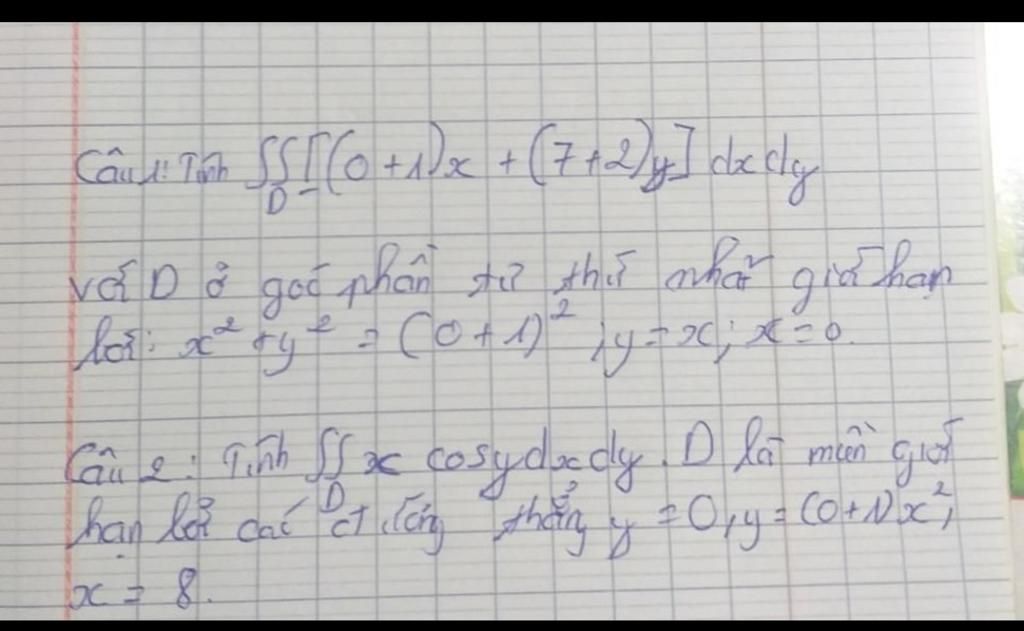 Câu 1: Tính ∬_D [(0+1)x + (7+2)y] dxdy
với D ở góc phần tư thứ nhất giới hạn
bởi: x² + y² = (0+1)² ; y = x; x = 0.
Câu 2: Tính ∬_D x cosydxdy. D là miền giới
hạn bởi các đường thẳng y = 0, y = (0+1)x²,
x = 8.